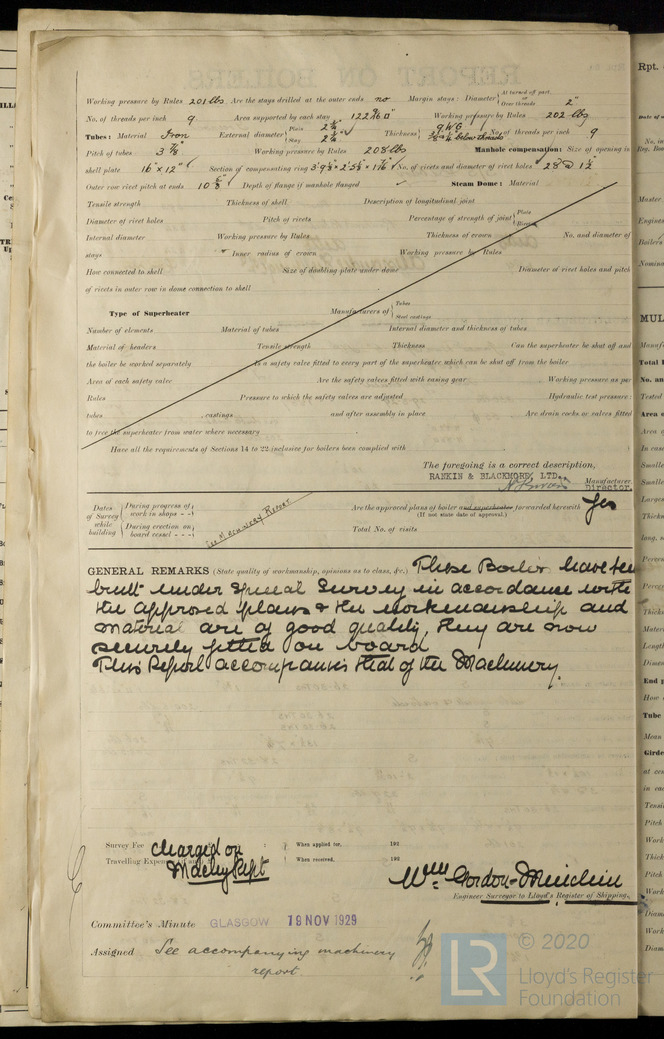 Working pressure by Rules 201 lbs. Are the stays drilled at the outer ends no Margin stays: Diameter { At turned off part, or Over threads 2"
No. of threads per inch 9. Area supported by each stay 122 Working pressure by Rules 202 lbs
Tubes: Material Iron External diameter { Plain Stay Thickness { 9 WG below threads No. of threads per inch 9
Pitch of tubes 3 7/8" Working pressure by Rules 208 lbs Manhole compensation: Size of opening in
shell plate 16" x 12" Section of compensating ring No. of rivets and diameter of rivet holes 28 @ 1 1/2"
Outer row rivet pitch at ends 10 Depth of flange if manhole flanged ✓ Steam Dome: Material
Tensile strength Thickness of shell Description of longitudinal joint
Diameter of rivet holes Pitch of rivets Percentage of strength of joint { Plate Rivets
Internal diameter Working pressure by Rules Thickness of crown No. and diameter of
stays Inner radius of crown Working pressure by Rules
How connected to shell Size of doubling plate under dome Diameter of rivet holes and pitch
of rivets in outer row in dome connection to shell
Type of Superheater Manufacturers of { Tubes Steel castings
Number of elements Material of tubes Internal diameter and thickness of tubes
Material of headers Tensile strength Thickness Can the superheater be shut off and
the boiler be worked separately Is a safety valve fitted to every part of the superheater which can be shut off from the boiler
Area of each safety valve Are the safety valves fitted with easing gear Working pressure as per
Rules Pressure to which the safety valves are adjusted Hydraulic test pressure:
tubes , castings and after assembly in place Are drain cocks or valves fitted
to free the superheater from water where necessary
Have all the requirements of Sections 14 to 22 inclusive for boilers been complied with
The foregoing is a correct description,
RANKIN & BLACKMORE, LTD. Manufacturer.
Director.
Dates of Survey while building { During progress of work in shops - - } { During erection on board vessel - - - } See Machinery Report
Are the approved plans of boiler and superheater forwarded herewith Yes
(If not state date of approval.)
Total No. of visits
GENERAL REMARKS (State quality of workmanship, opinions as to class, &c.) These Boilers have been
built under Special Survey in accordance with
the approved plans & the workmanship and
material are of good quality, they are now
securely fitted on board
This Report accompanies that of the Machinery.
Survey Fee charged on When applied for, 192
Travelling Expenses Machy Rept When received, 192
Wm Gordon-Minchin
Engineer Surveyor to Lloyd's Register of Shipping.
Committee's Minute GLASGOW 19 NOV 1929
Assigned See accompanying machinery
report.
LR © 2020
Lloyd's Register
Foundation